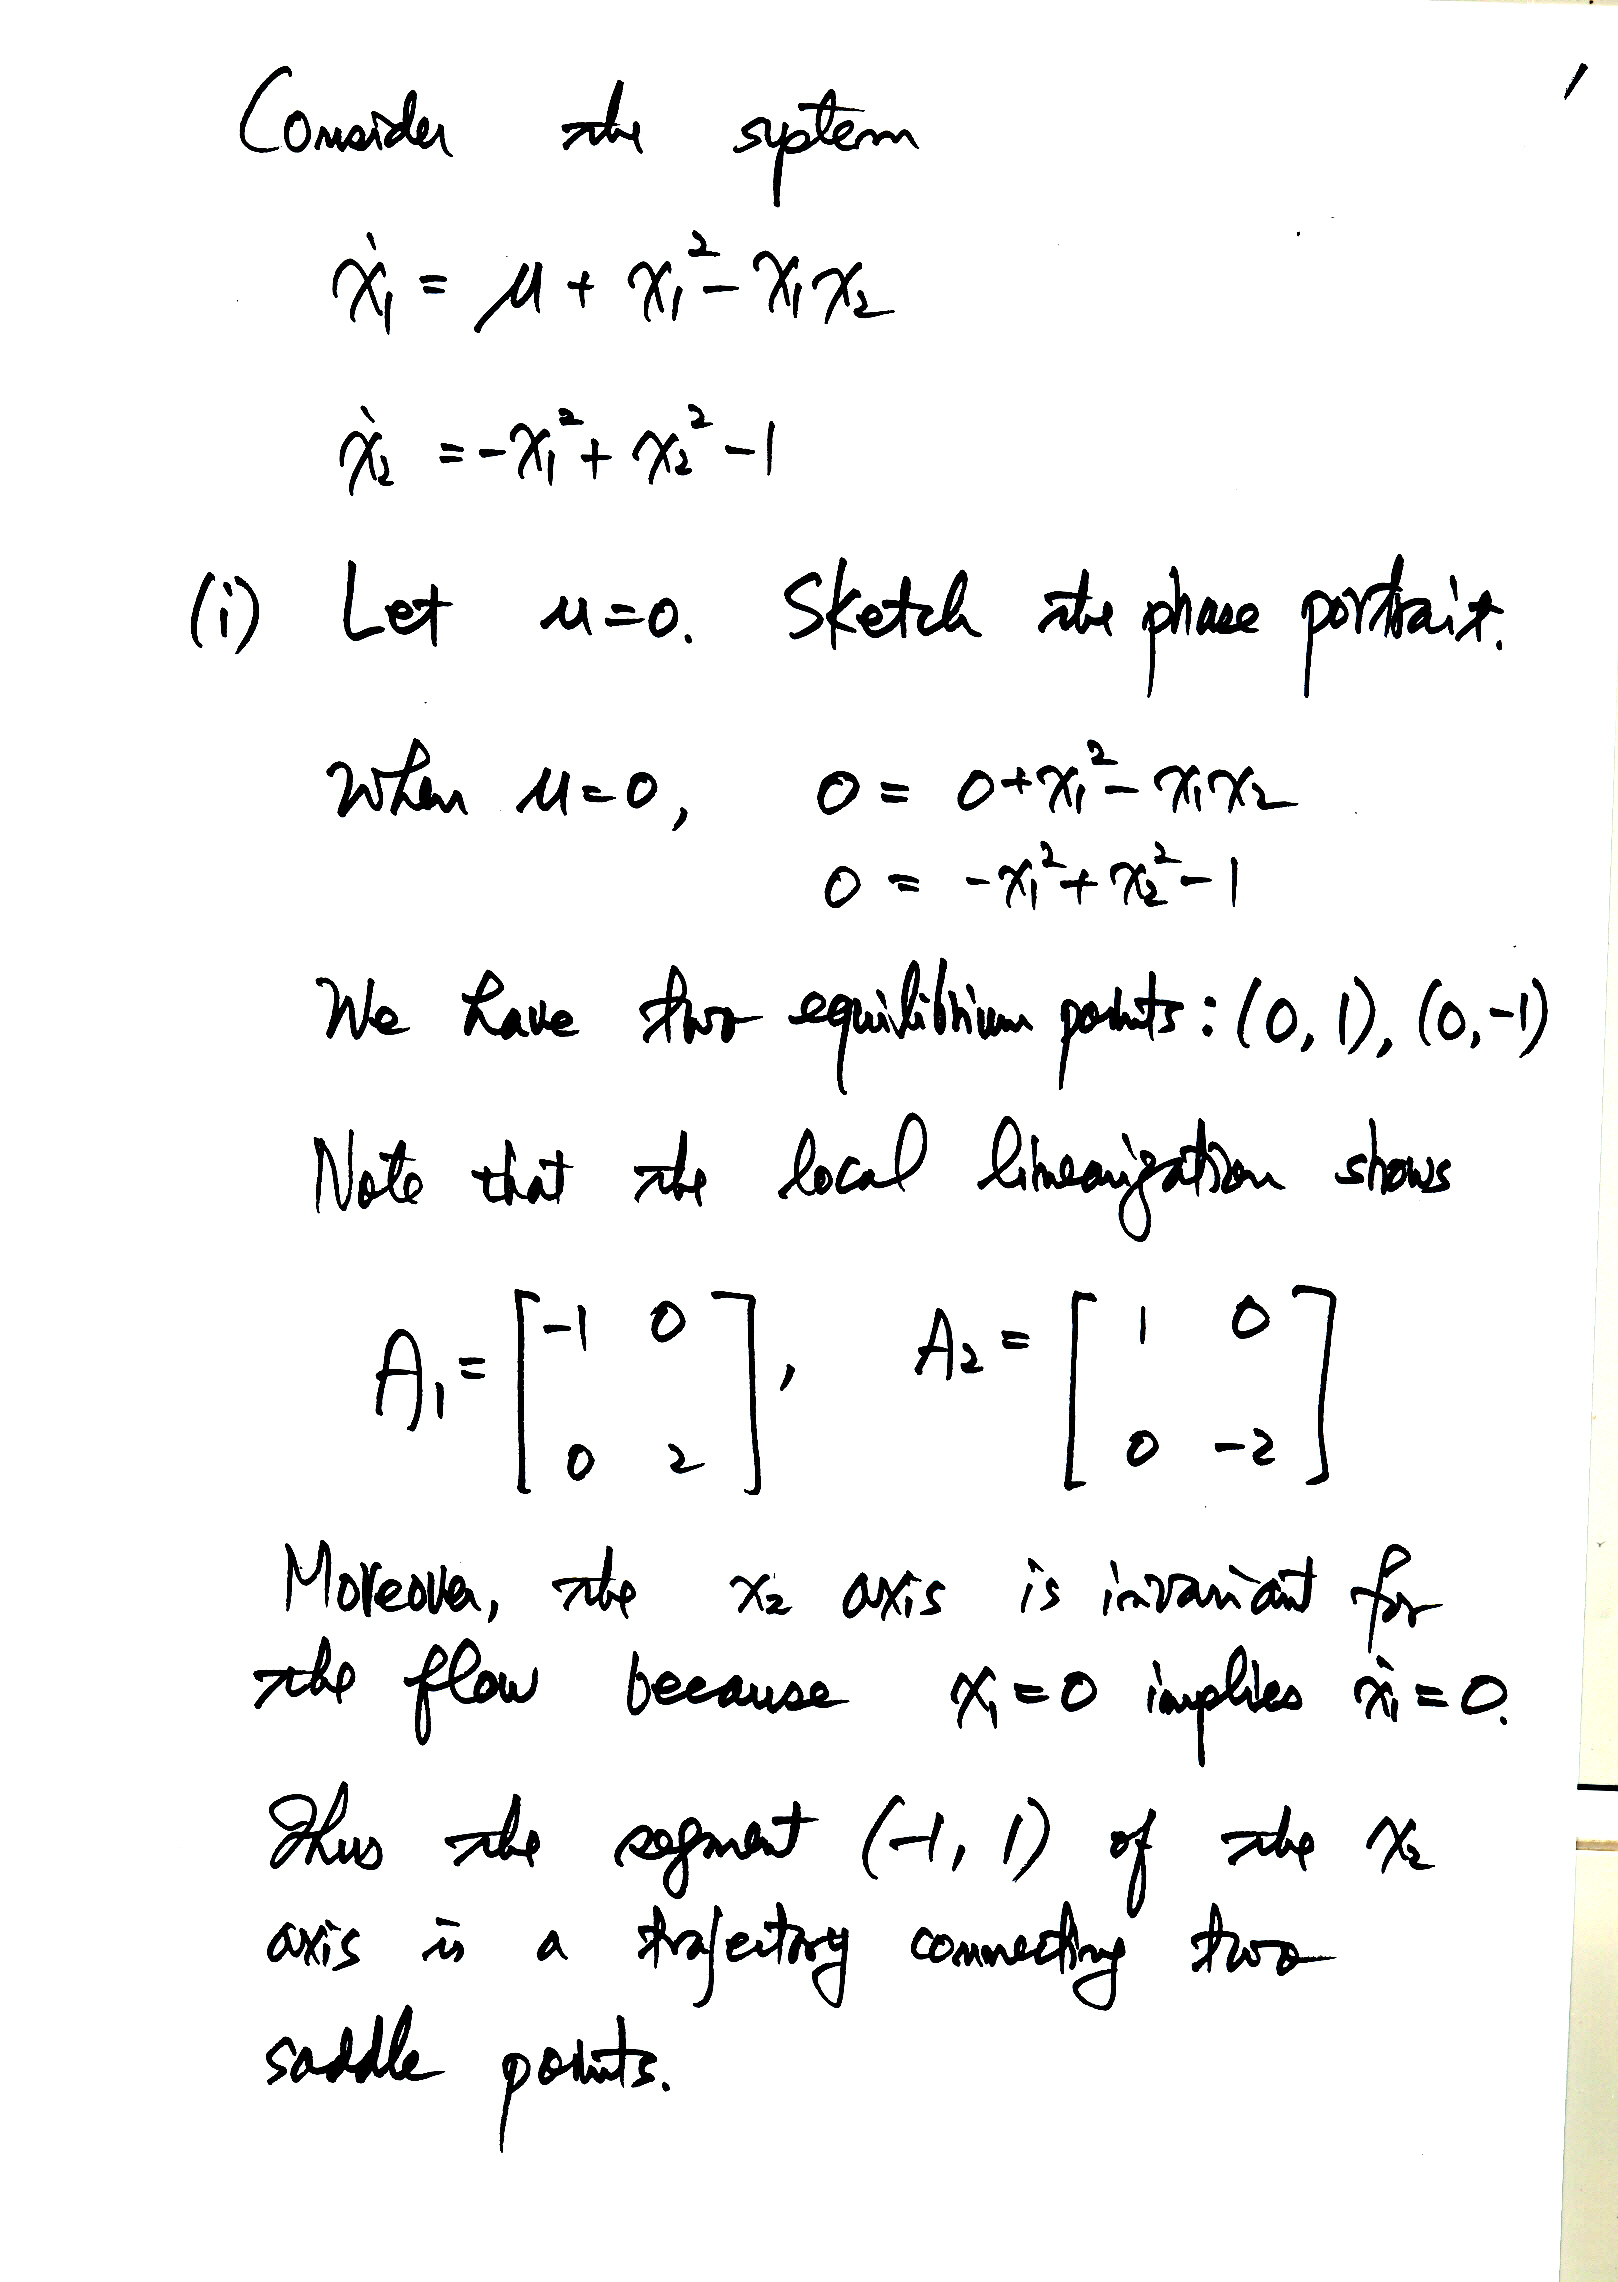 1
Consider the system
ẋ₁ = μ + x₁² - x₁x₂
ẋ₂ = -x₁² + x₂² - 1
(i) Let μ=0. Sketch the phase portrait.
When μ=0, 0 = 0+x₁² - x₁x₂
0 = -x₁² + x₂² - 1
We have two equilibrium points : (0, 1), (0, -1)
Note that the local linearization shows
A₁ = [ -1 0 ; 0 2 ], A₂ = [ 1 0 ; 0 -2 ]
Moreover, the x₂ axis is invariant for
the flow because x₁=0 implies ẋ₁=0.
Thus the segment (-1, 1) of the x₂
axis is a trajectory connecting two
saddle points.